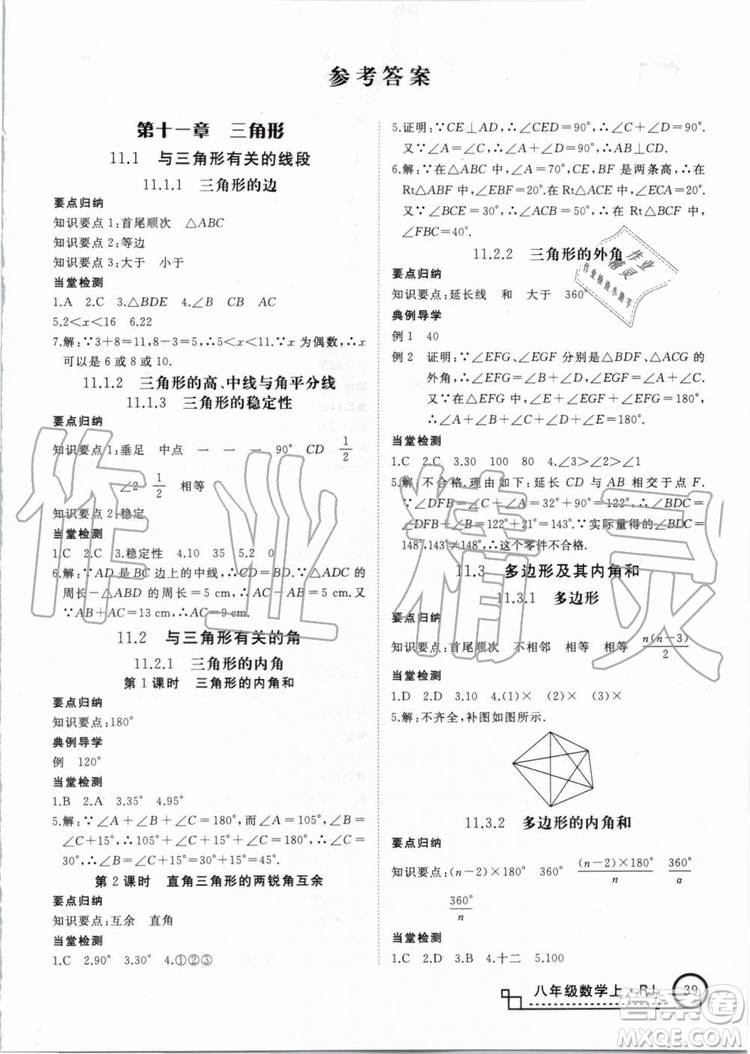 参考答案
第十一章 三角形
11.1 与三角形有关的线段
11.1.1 三角形的边
要点归纳
知识要点1:首尾顺次 △ABC
知识要点2:等边
知识要点3:大于 小于
当堂检测
1.A 2.C 3.△BDE 4.3
5.2<x<16 6.22
7.解:∵3+8=11,8-3=5,∴5<x<11.∵x为偶数,∴x
可以是6或8或10.
11.1.2 三角形的高、中线与角平分线
11.1.3 三角形的稳定性
要点归纳
知识要点1:垂足 中点 一 一 一 90° CD 1/2
∠2 1/2 相等
知识要点2:稳定
当堂检测
1.C 2.C 3.稳定性 4.10 35 5.2 0
6.解:∵AD是BC边上的中线,∴CD=BD.∴△ADC的
周长-△ABD的周长=5 cm,∴AC-AB=5 cm.又
∵AB+AC=13 cm,∴AC=9 cm.
11.2 与三角形有关的角
11.2.1 三角形的内角
第1课时 三角形的内角和
要点归纳
知识要点:180°
典例导学
例 120°
当堂检测
1.B 2.A 3.35° 4.95°
5.解:∵∠A+∠B+∠C=180°,而∠A=105°,∴∠B+
∠C+15°,∴105°+∠C+15°+∠C=180°.∴∠C=
30°.∴∠B=∠C+15°=30°+15°=45°.
第2课时 直角三角形的两锐角互余
要点归纳
知识要点:互余 直角
当堂检测
1.C 2.90° 3.90° 4.①②③
5.证明:∵CE⊥AD,∴∠CED=90°,∴∠C+∠D=90°.
又∵∠A=∠C,∴∠A+∠D=90°,∴AB⊥CD.
6.解:∵在△ABC中,BE,CF是两条高,∴在
Rt△ABE中,∠EBF=20°,在Rt△ACF中,∠ECA=20°.
又∵∠BCE=30°,∴∠ACB=50°.∴在Rt△BCE中,
∠FBC=40°.
11.2.2 三角形的外角
要点归纳
知识要点:延长线 和 大于 360°
典例导学
例1 40
例2 证明:∵∠EFG,∠EGF分别是△BDF、△ACG的
外角,∴∠EFG=∠B+∠D,∠EGF=∠A+
∠C.又∵在△EFG中,∠E+∠EGF+∠EFG=
180°,∴∠A+∠B+∠C+∠D+∠E=180°.
当堂检测
1.C 2.C 3.30 100 80 4.∠3>∠2>∠1
5.解:不合格.理由如下:延长CD与AB相交于点F.
∵∠DFB=∠C+∠A=32°+90°=122°,∴∠BDC=
∠DFB+∠B=122°+21°=143°.∵实际量得∠BDC=
148°,143°≠148°,∴这个零件不合格.
11.3 多边形及其内角和
11.3.1 多边形
要点归纳
知识要点:首尾顺次 不相邻 相等 相等 n(n-3)/2
当堂检测
1.D 2.D 3.10 4.(1)× (2)× (3)×
5.解:不齐全,补图如图所示.
11.3.2 多边形的内角和
要点归纳
知识要点:(n-2)×180° (n-2)×180°/n 360° 360°/α
360°/n
当堂检测
1.C 2.B 3.B 4.十二 5.100
八年级数学上·RJ 39
作业精灵
作业检查小助手
作业精灵
答案圈
MXQE.COM